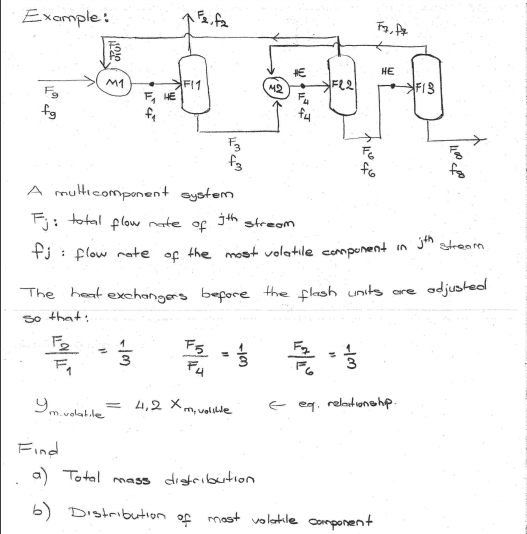 Example:
F2, f2
F7, f7
F5
f5
M1
Fl1
M2
HE
Fl2
HE
Fl3
F9
f9
F1 HE
f1
F4
f4
F3
f3
F6
f6
F8
f8
A multicomponent system
Fj : total flow rate of jth stream
fj : flow rate of the most volatile component in jth stream
The heat exchangers before the flash units are adjusted
so that:
F2/F1 = 1/3 F5/F4 = 1/3 F7/F6 = 1/3
y m.volatile = 4,2 x m,volatile ← eq. relationshp.
Find
a) Total mass distribution
b) Distribution of most volatile component